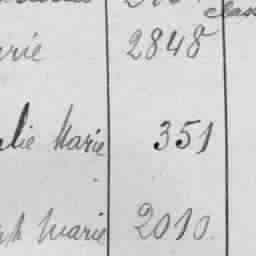 class
rie 2848
lie Marie 351
Marie 2010